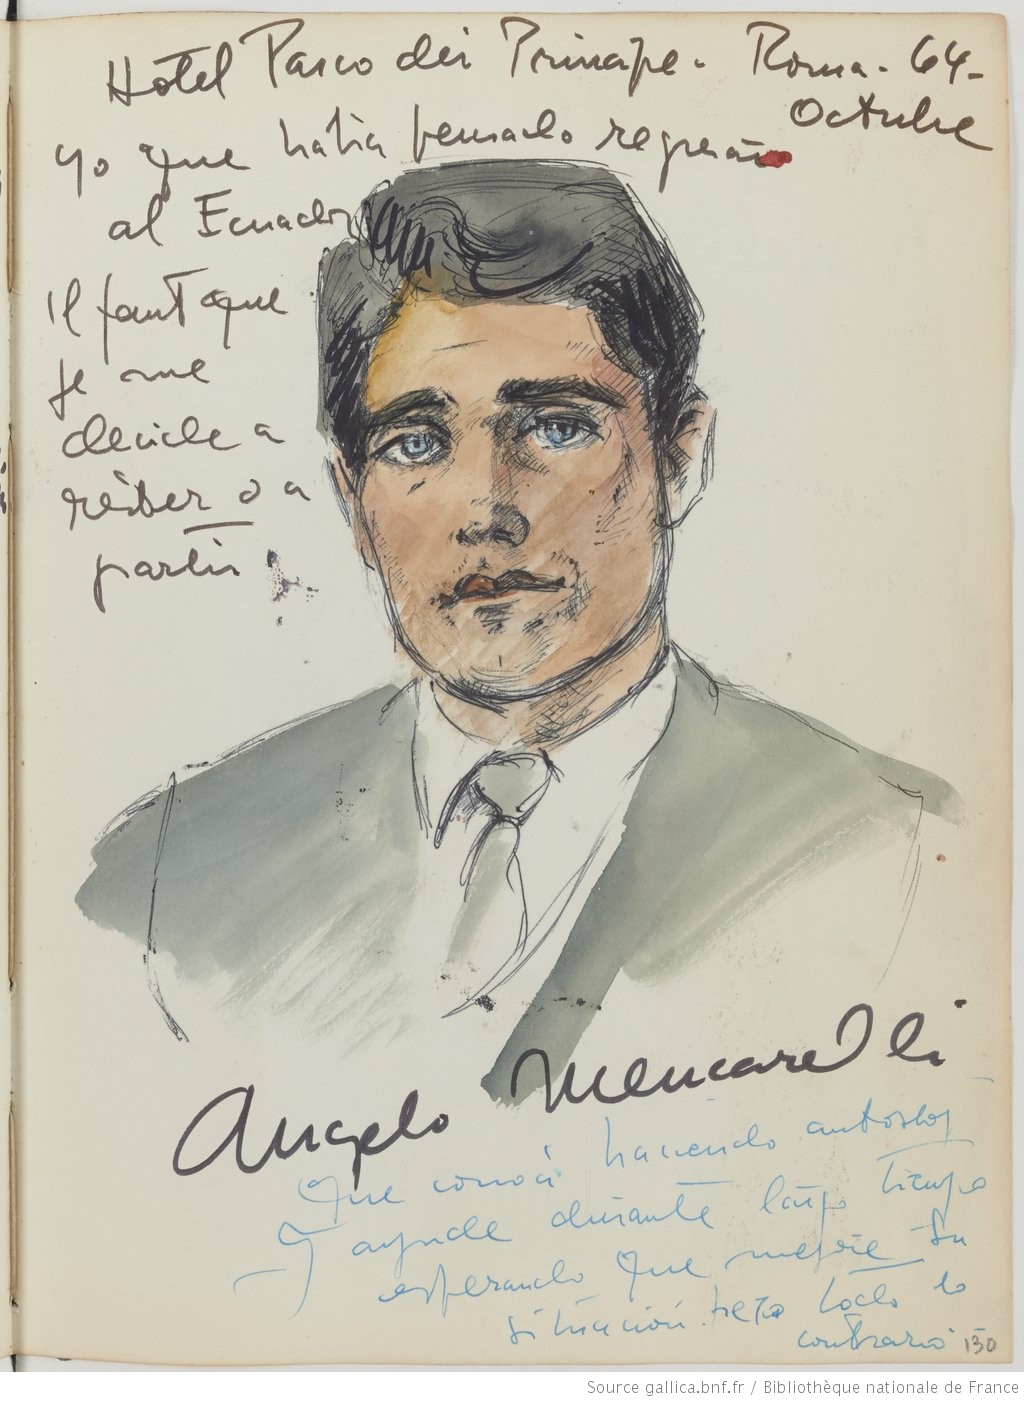 Hotel Parco dei Principe. Roma. 64-
Octubre
yo que habia pensado regresar
al Ecuador
Il faut que
je me
decide a
rester o a
partir
Angelo Mencarelli
Que conocí haciendo autostop
y ayude durante largo tiempo
esperando que mejore su
situación. pero todo lo
contrario
130
Source gallica.bnf.fr / Bibliothèque nationale de France